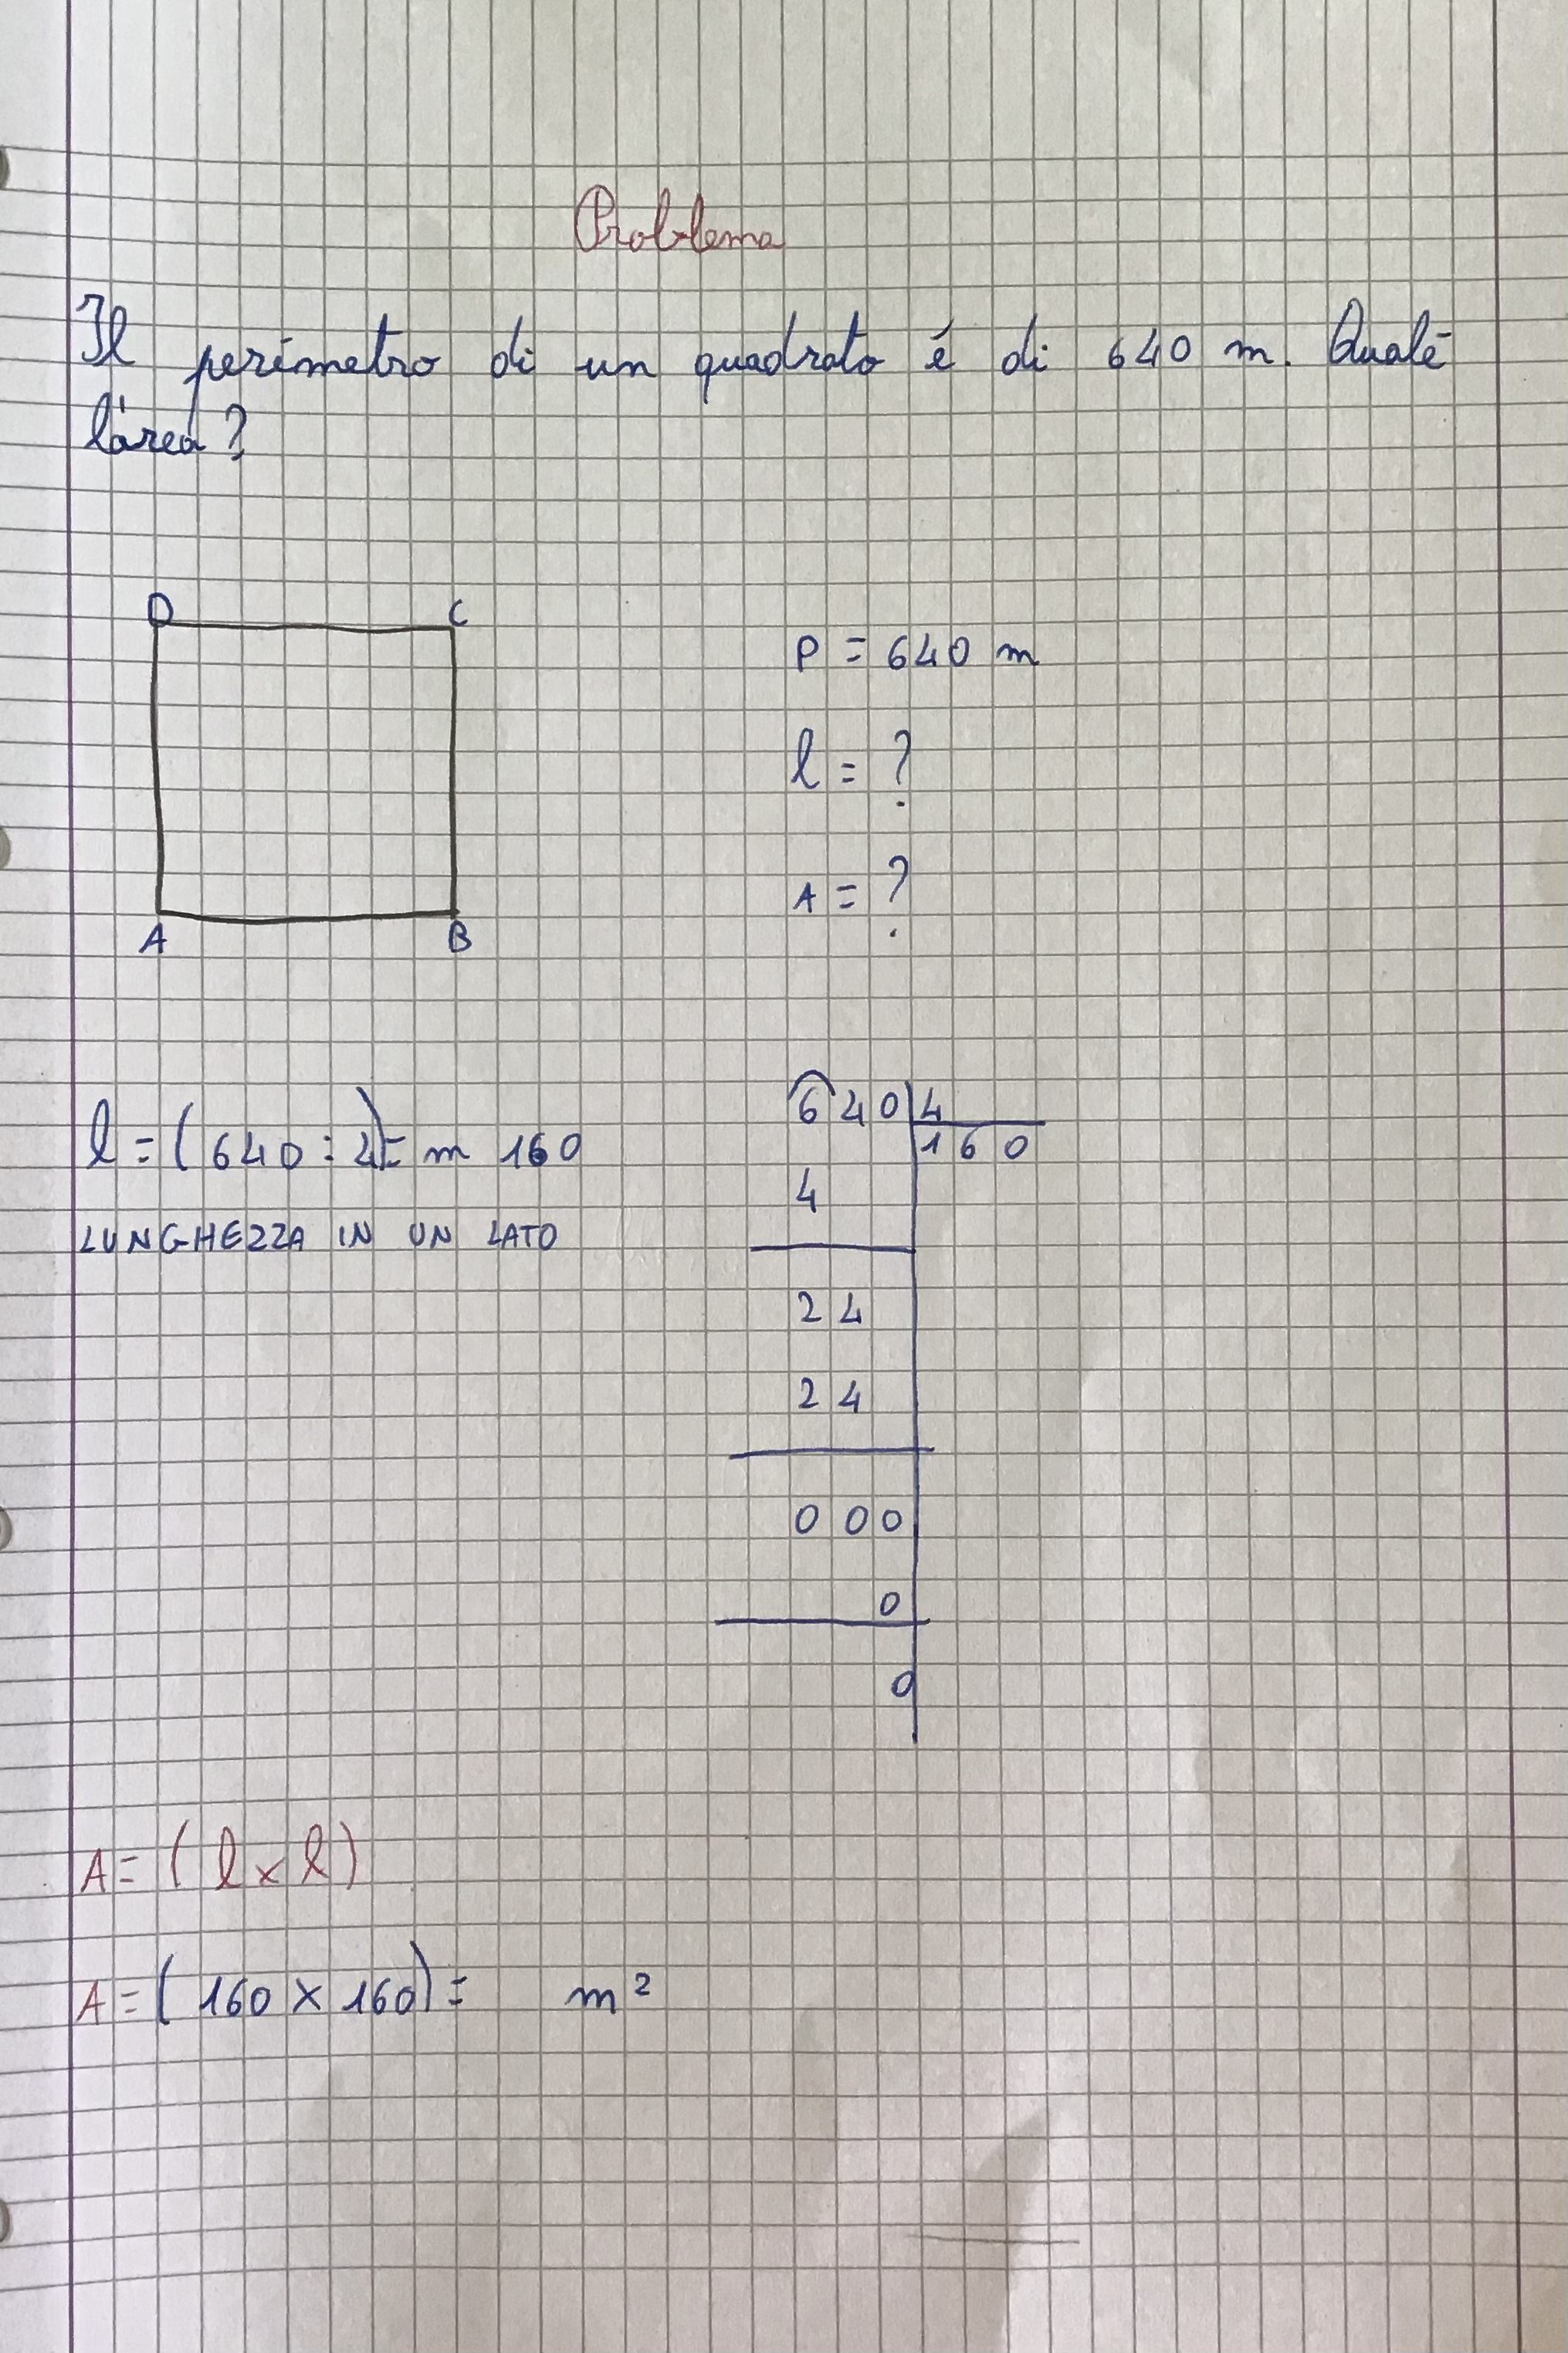 Problema
Il perimetro di un quadrato é di 640 m. Qualé
l'area?
D C
P = 640 m
l = ?
A = ?
A B
l = (640 : 4) = m 160
LUNGHEZZA IN UN LATO
640 4
160
4
24
24
000
0
0
A = (l x l)
A = (160 x 160) = m²